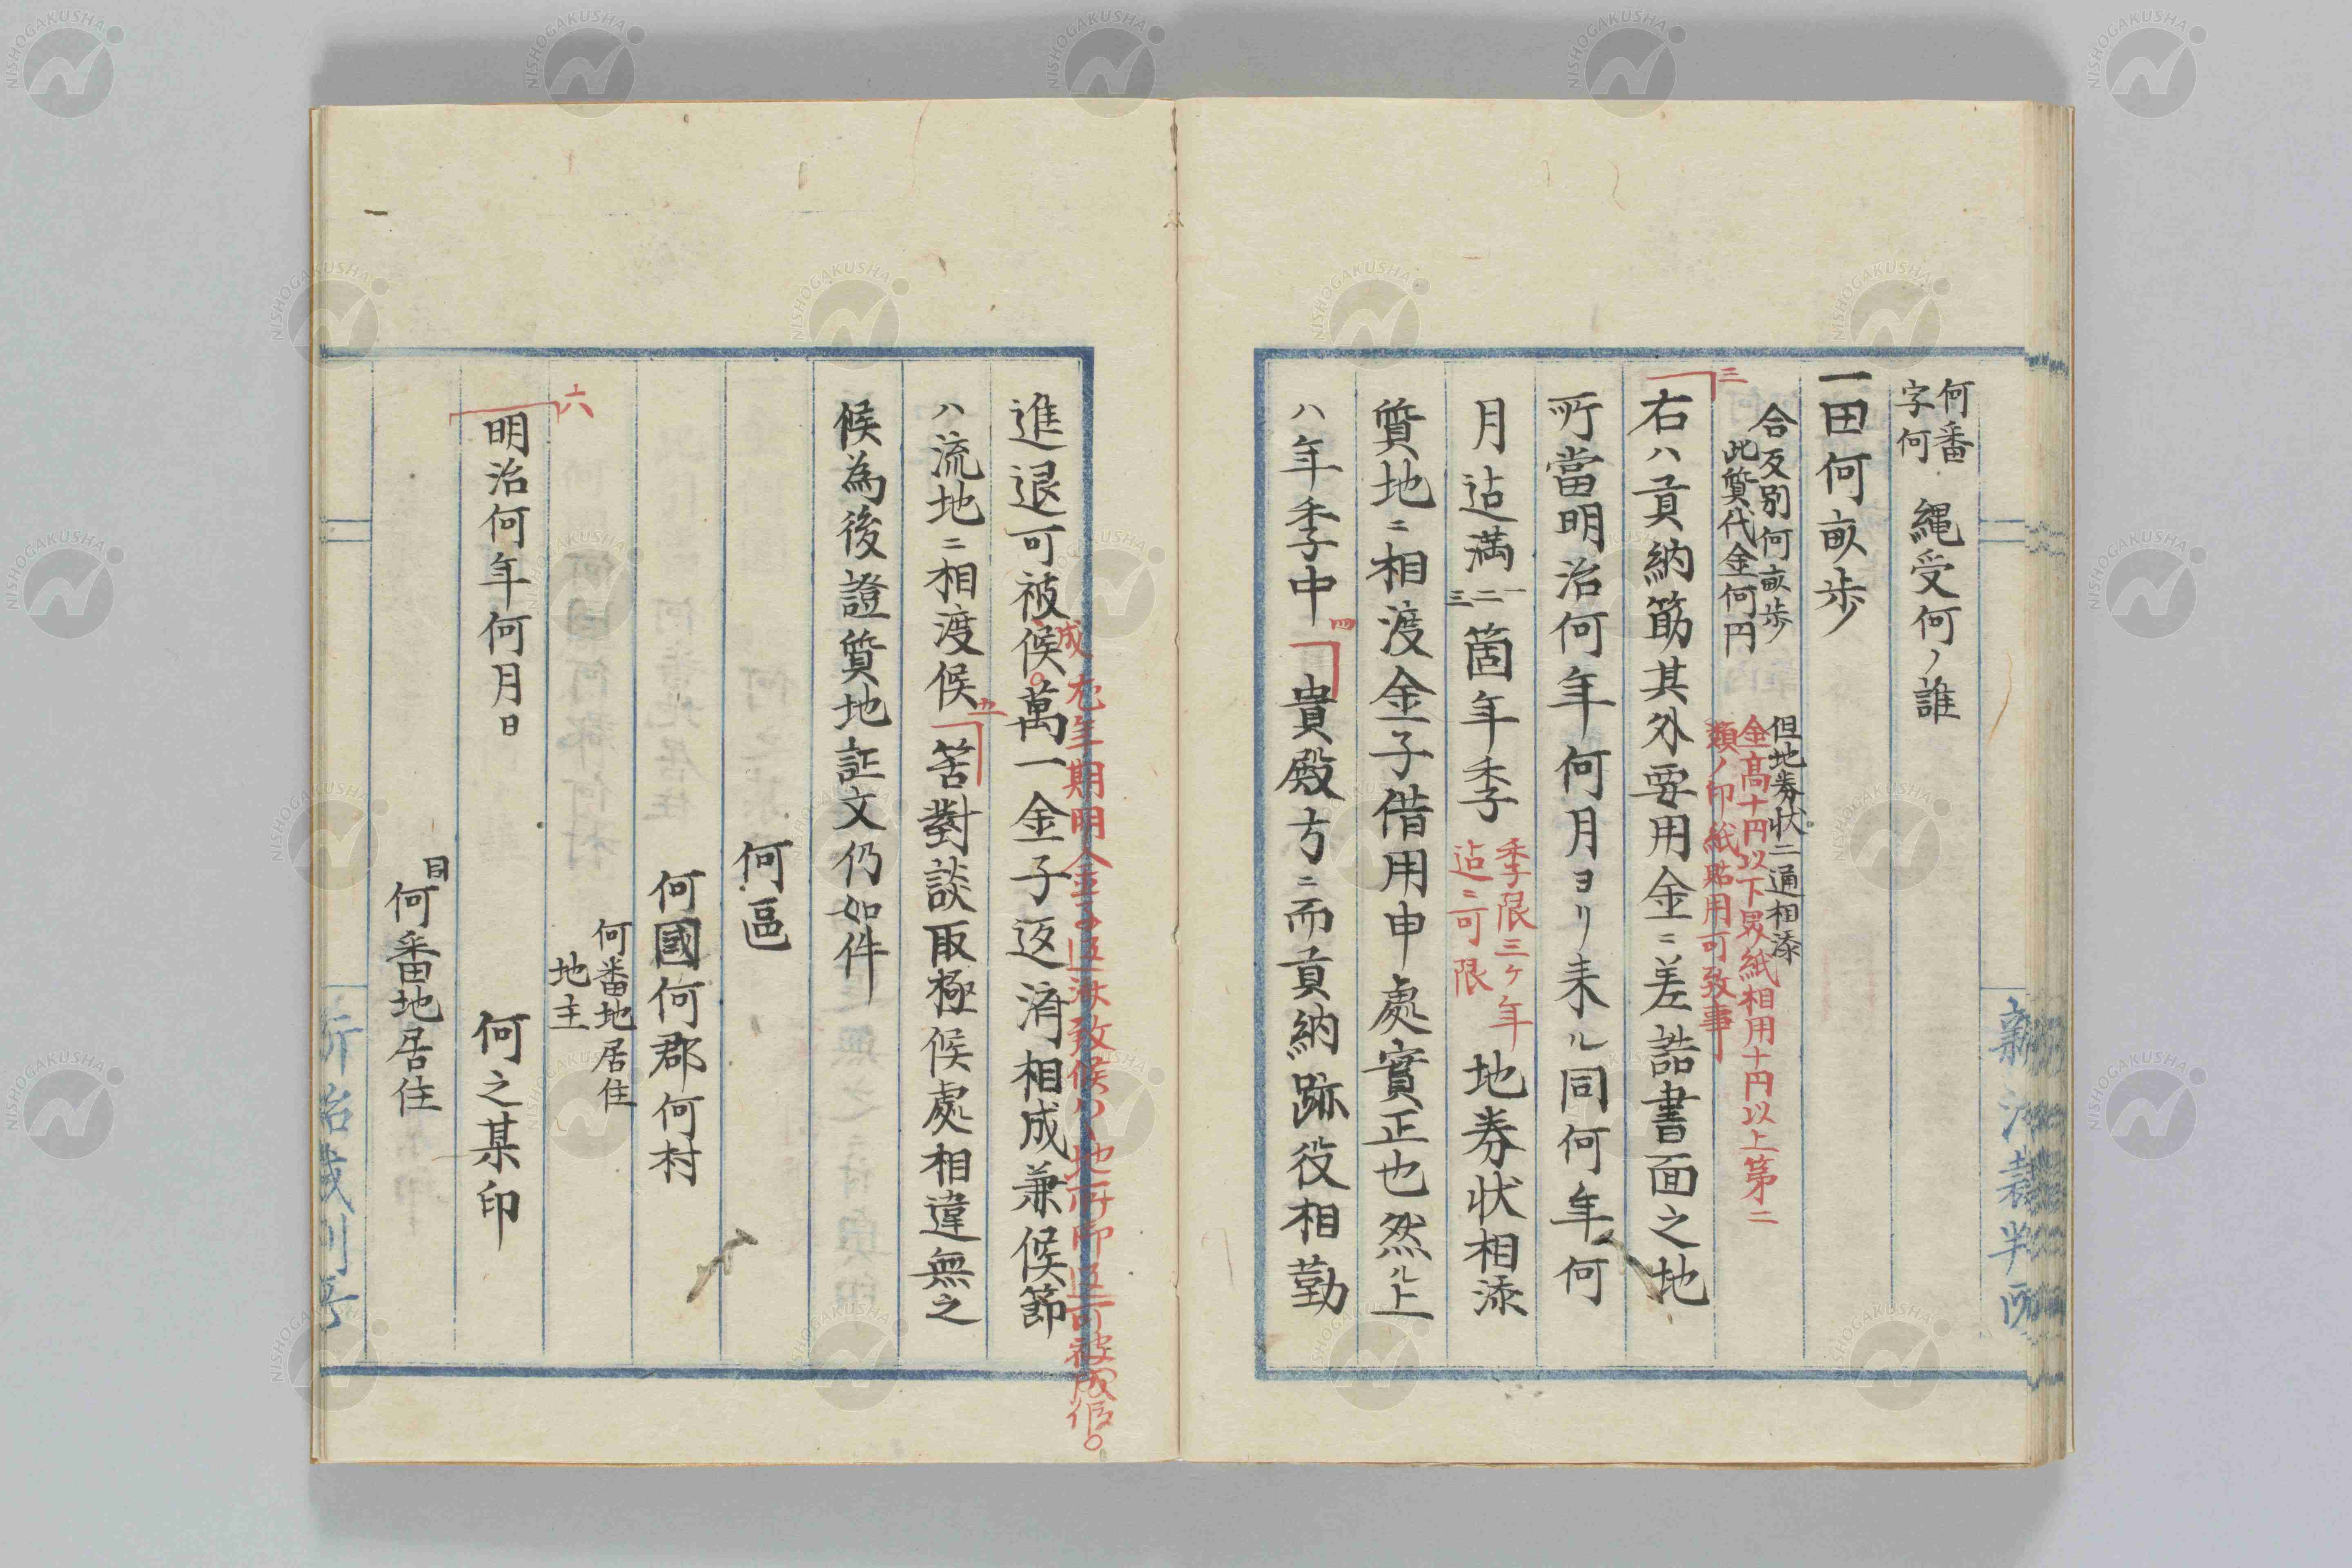 何番
字何
縄受何ノ誰
一田何畝歩
合反別何畝歩
此質代金何円
但地券状二通相添
金高十円以下界紙相用十円以上第二
類ノ印紙貼用可致事
三
右ハ貢納筋其外要用金ニ差詰書面之地
所當明治何年何月ヨリ来ル同何年何
月迠満一二三箇年季
季限三ケ年
迠ニ可限
地券状相添
質地ニ相渡金子借用申處實正也然ル上
ハ年季中
四
貴殿方ニ而貢納跡役相勤
新治裁判所
進退可被候萬一金子返済相成兼候節
成
年期明金子返済致候ハヽ地所御返可被成候
ハ流地ニ相渡候
五
筈對談取極候處相違無之
候為後證質地証文仍如件
何區
何國何郡何村
何番地居住
地主
六
明治何年何月日
何之某印
同
何番地居住
新治裁判所